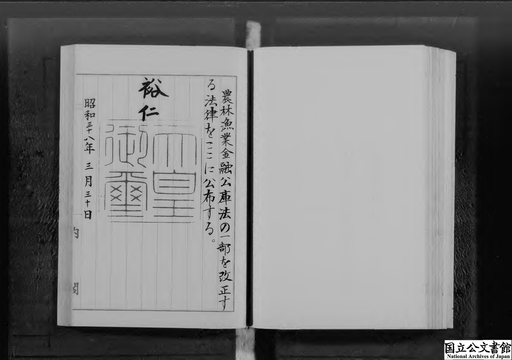 農林漁業金融公庫法の一部を改正す
る法律をここに公布する。
裕仁
天皇
御璽
昭和三十八年三月三十日
内閣
国立公文書館
National Archives of Japan